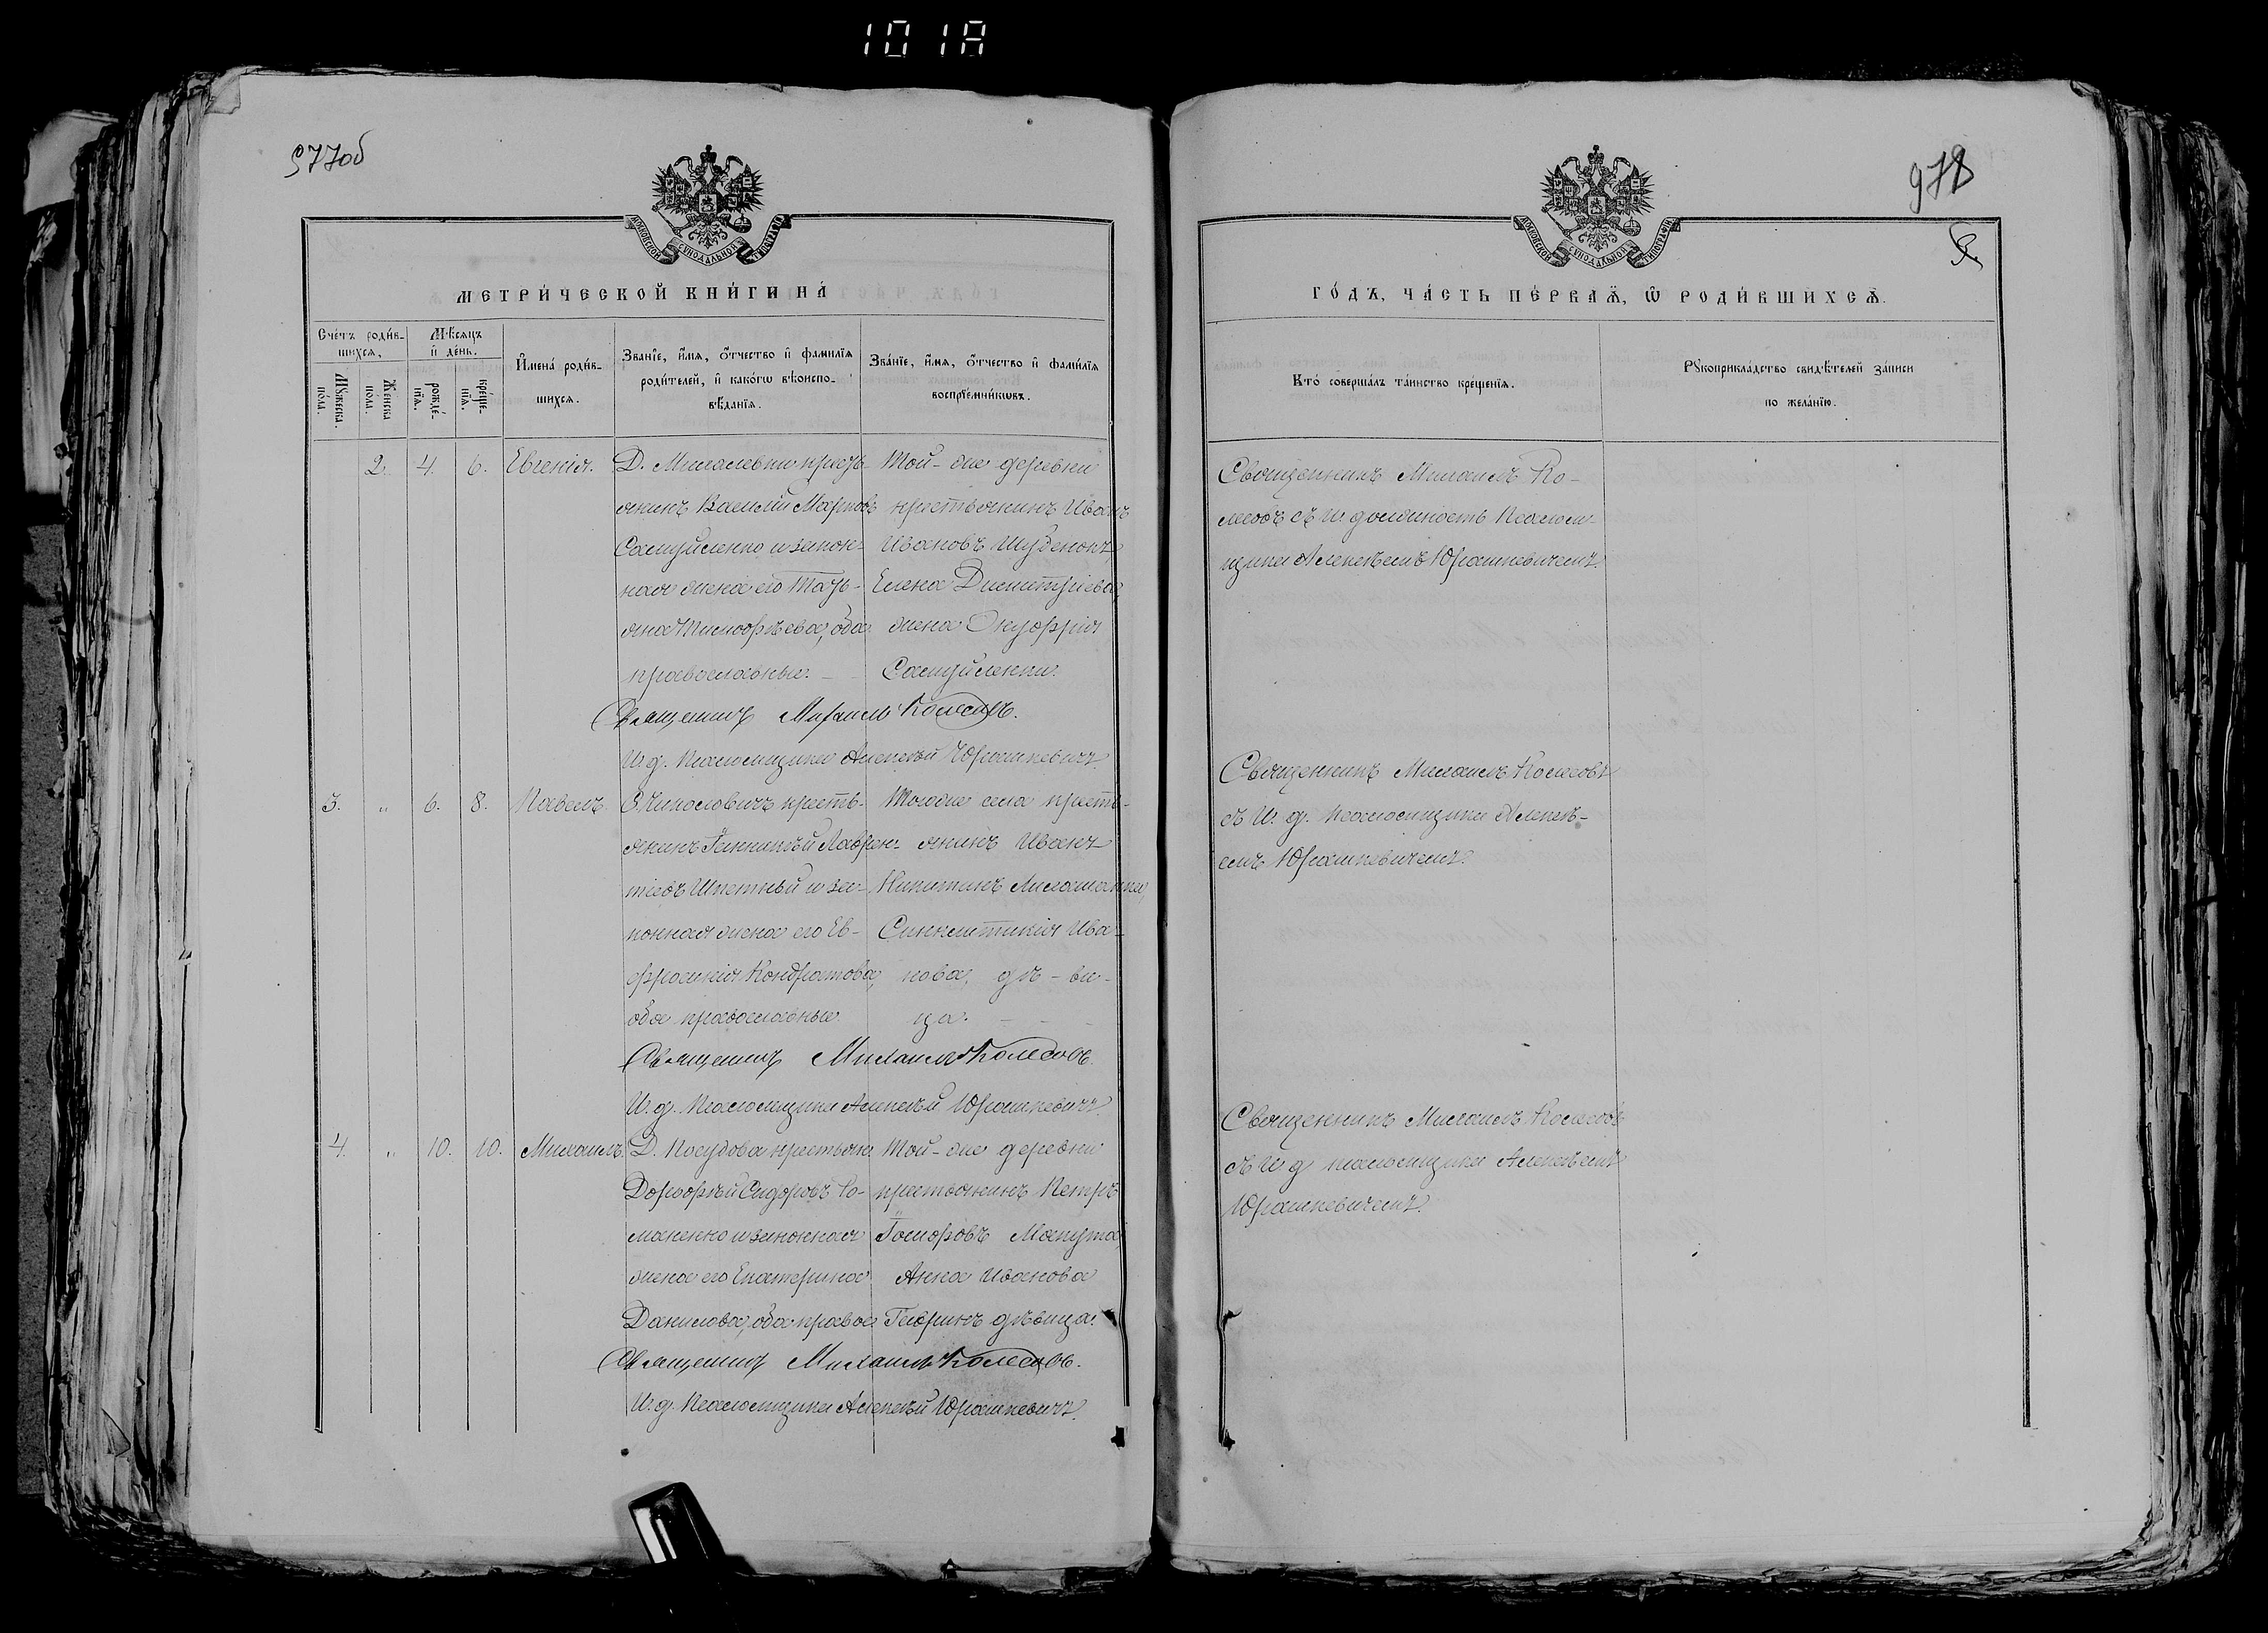 1018
977об
978
МОСКОВСКОЙ СѴНОДАЛЬНОЙ ТИПОГРАФІИ
МЕТРИ́ЧЕСКОЙ КНИ́ГИ НА́
Сче́тъ роди́в-
шихся,
Мѣ́сяцъ
и҆ де́нь.
Мꙋ́жеска
по́ла.
Же́нска
по́ла.
рожде́-
нїѧ.
креще́-
нїѧ.
И҆мена́ роди́в-
шихся.
Зва́нїе, и҆́мѧ, ѻ҆́тчество и҆ фамилїѧ
роди́телей, и҆ како́гѡ вѣроиспо-
вѣ́данїѧ.
Зва́нїе, и҆́мѧ, ѻ҆́тчество и҆ фами́лїѧ
воспрїе́мникѡвъ.
2. 4. 6. Евгенія.
Д. Михалевки кресть-
янинъ Василій Марковъ
Самуйленко и закон-
ная жена его Тать-
яна Тимоѳѣева, оба
православные. –
Той-же деревни
крестьянинъ Иванъ
Ивановъ Шуденокъ
Елена Димитріева,
жена Онуфрія
Самуйленки.
Священникъ Михаилъ Колесовъ.
И. д. Псаломщика Алексѣй Юрашкевичъ.
3. „ 6. 8. Павелъ.
С. Чикаловичъ кресть-
янинъ Іанникій Лаврен-
тіевъ Шпетный и за-
конная жена его Ев-
фросинія Кондратова,
оба православные.
Тогоже села кресть-
янинъ Иванъ
Никитинъ
Синклитикія Ива-
нова, дѣ-ви-
ца. – – –
Священникъ Михаилъ Колесовъ.
И. д. Псаломщика Алексѣй Юрашкевичъ.
4. „ 10. 10. Михаилъ.
Д. Посудова крестьян.
Дороѳѣй Сидоровъ Ро-
маненко и законная
жена его Екатерина
Данилова, оба правос.
Той-же деревни
крестьянинъ Петръ
Мапута,
Анна Иванова
Гавринъ дѣвица.
Священникъ Михаилъ Колесовъ.
И. д. Псаломщика Алексѣй Юрашкевичъ.
МОСКОВСКОЙ СѴНОДАЛЬНОЙ ТИПОГРАФІИ
ГО́ДЪ, ЧА́СТЬ ПЕ́РВАЯ, Ѽ РОДИ́ВШИХСЯ.
Кто́ соверша́лъ та́инство креще́нїѧ.
Рꙋкоприкла́дство свидѣ́телей за́писи
по жела́нїю.
Священникъ Михаилъ Ко-
лесовъ съ И. должность Псалом-
щика Алексѣемъ Юрашкевичемъ.
Священникъ Михаилъ Колесовъ
съ И. д. Псаломщика Алексѣ-
емъ Юрашкевичемъ.
Священникъ Михаилъ Колесовъ
съ И д псаломщика Алексѣемъ
Юрашкевичемъ.